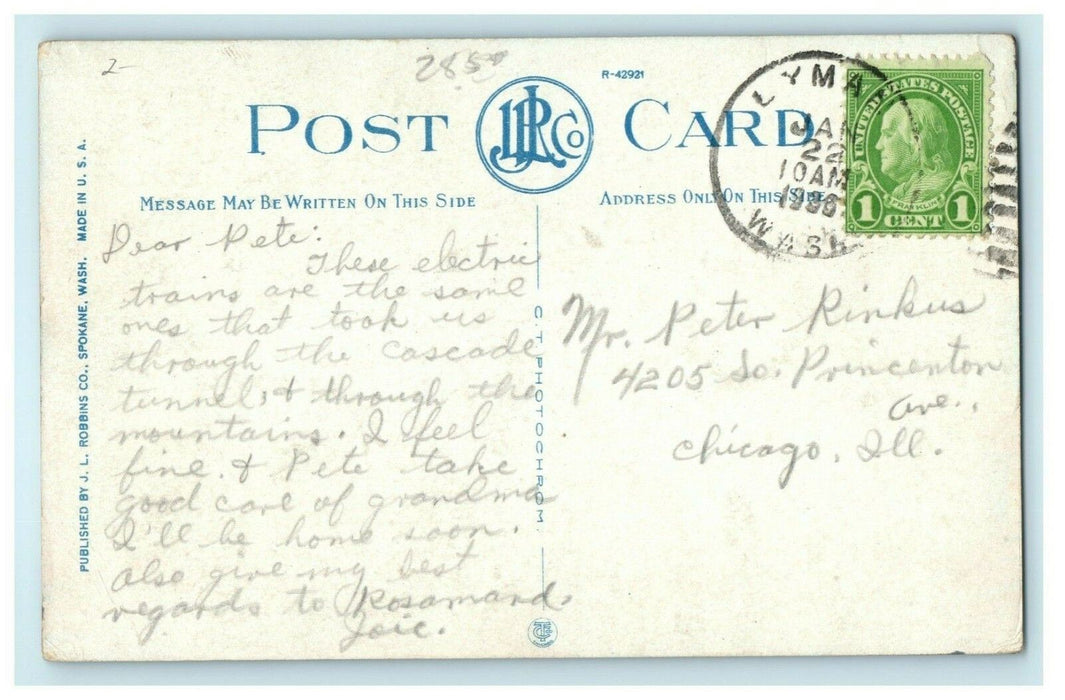 2-
285
R-42921
POST JLRCo CARD
MESSAGE MAY BE WRITTEN ON THIS SIDE
ADDRESS ONLY ON THIS SIDE
LYMA
JAN
22
10AM
WASH
UNITED STATES POSTAGE
FRANKLIN
1 CENT 1
PUBLISHED BY J. L. ROBBINS CO., SPOKANE, WASH. MADE IN U. S. A.
Dear Pete:
These electric
trains are the same
ones that took us
through the Cascade
tunnel, & through the
mountains. I feel
fine. & Pete take
good care of grandma
I'll be home soon.
also give my best
regards to Rosamand.
Joie.
C. T. PHOTOCHROM
Mr. Peter Rinkus
4205 So. Princenton
Ave.,
Chicago, Ill.